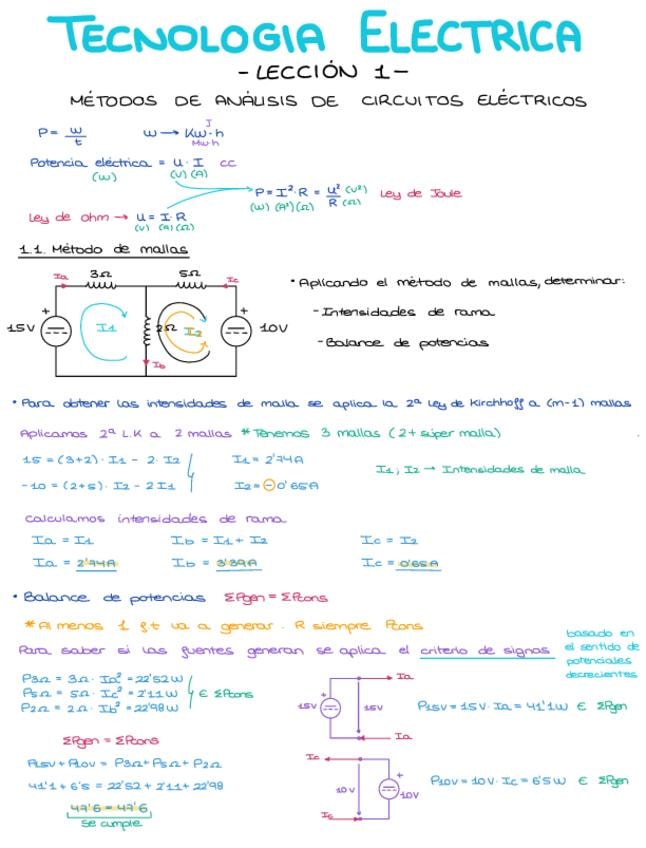 TECNOLOGIA ELECTRICA
- LECCIÓN 1 -
MÉTODOS DE ANÁLISIS DE CIRCUITOS ELÉCTRICOS
P = w/t    w → Kw·h
J
Mw·h
Potencia eléctrica = u · I  cc
(w) (v) (A)
P = I²·R = u²/R (v²) (Ω)  Ley de Joule
(w) (A²) (Ω)
Ley de ohm → u = I·R
(v) (A) (Ω)
1.1. Método de mallas
Ia 3Ω 5Ω Ic
15V + I1 2Ω I2 + 10V
Ib
• Aplicando el método de mallas, determinar:
- Intensidades de rama
- Balance de potencias
• Para obtener las intensidades de malla se aplica la 2ª ley de Kirchhoff a (m-1) mallas
Aplicamos 2ª L.K a 2 mallas *Tenemos 3 mallas (2+ súper malla)
15 = (3+2) · I1 - 2 · I2    I1 = 2'74A
-10 = (2+5) · I2 - 2 I1    I2 = -0'65A
I1, I2 → Intensidades de malla
Calculamos intensidades de rama
Ia = I1    Ib = I1 + I2    Ic = I2
Ia = 2'74A    Ib = 3'39A    Ic = 0'65A
• Balance de potencias ΣPgen = ΣPcons
*Al menos 1 ft va a generar. R siempre Pcons
Para saber si las fuentes generan se aplica el criterio de signos
basado en
el sentido de
potenciales
decrecientes
P3Ω = 3Ω · Ia² = 22'52W
P5Ω = 5Ω · Ic² = 2'11W ∈ ΣPcons
P2Ω = 2Ω · Ib² = 22'98W
Ia
15V + 15V
Ia
P15V = 15V · Ia = 41'1W ∈ ΣPgen
ΣPgen = ΣPcons
P15V + P10V = P3Ω + P5Ω + P2Ω
41'1 + 6'5 = 22'52 + 2'11 + 22'98
47'6 = 47'6
se cumple
Ic
10V + 10V
Ic
P10V = 10V · Ic = 6'5W ∈ ΣPgen